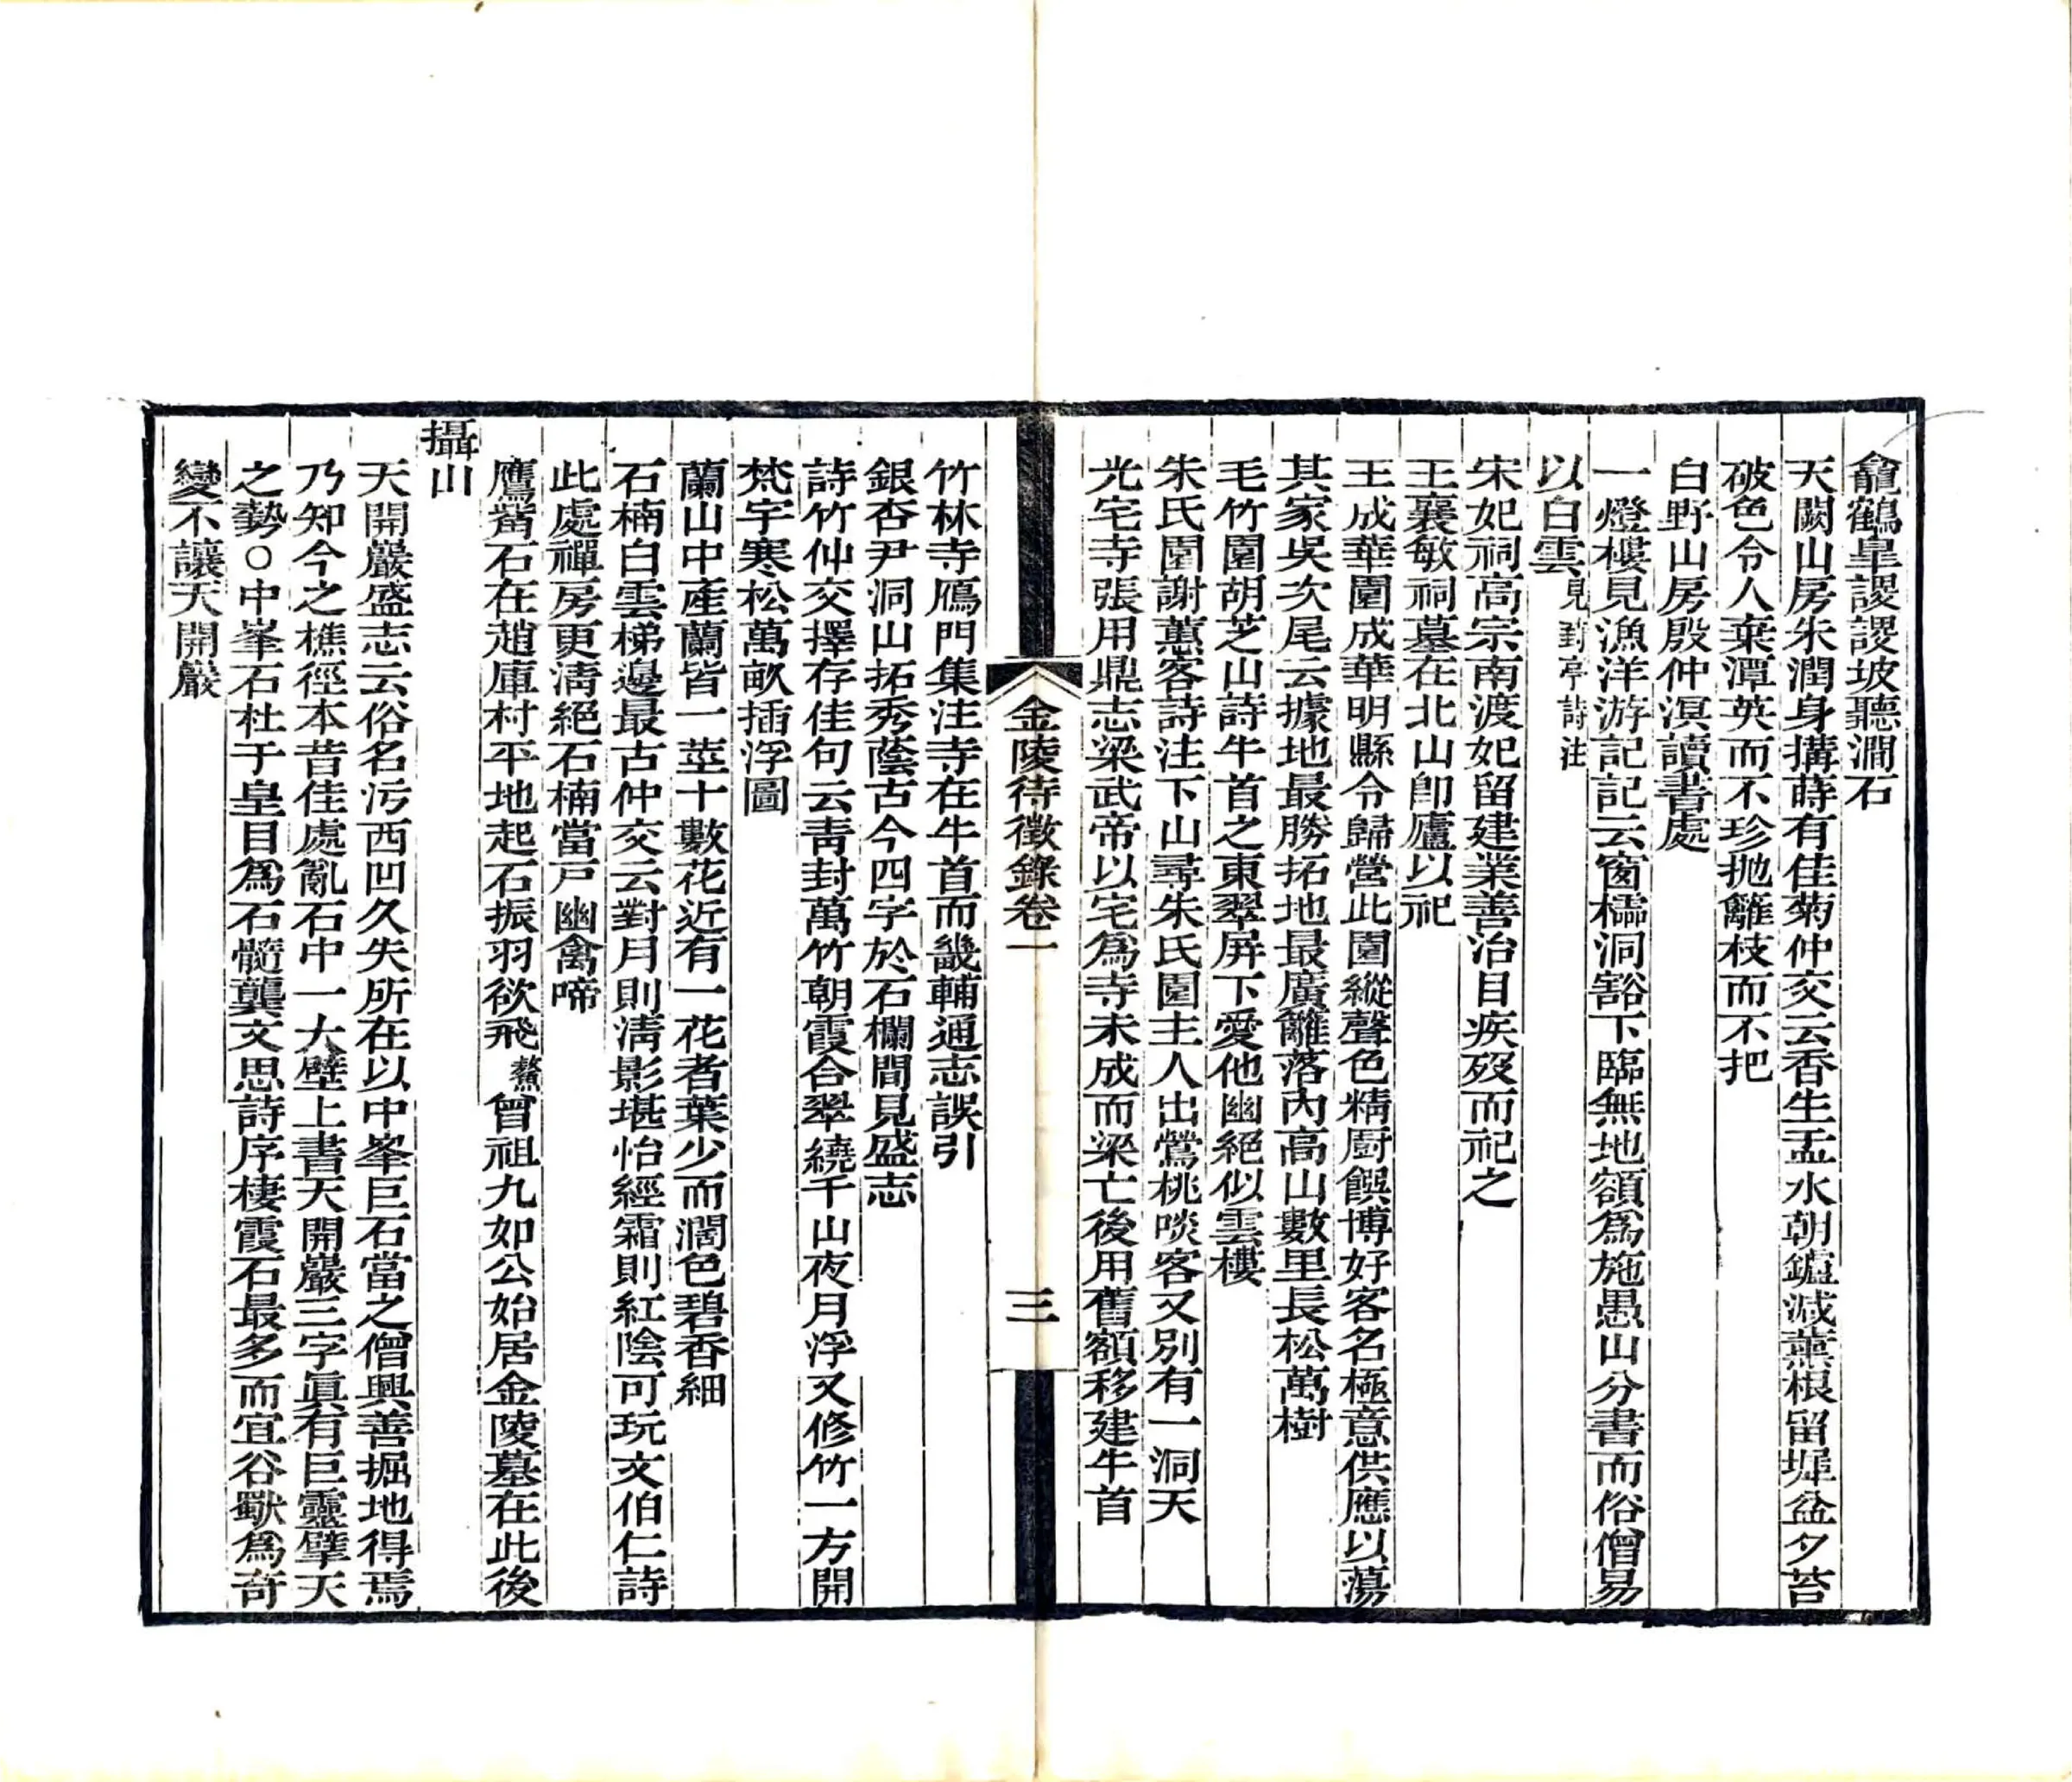 龕鶴臯謖謖坡聽澗石
天闕山房朱潤身搆蒔有佳菊仲交云香生盂水朝鑪減藁根留墀盆夕苔
破色令人棄潭英而不珍抛籬枝而不把
白野山房殷仲溟讀書處
一燈樓見漁洋游記記云窗櫺洞豁下臨無地額爲施愚山分書而俗僧易
以白雲見對亭詩注
宋妃祠高宗南渡妃留建業善治目疾歿而祀之
王襄敏祠墓在北山卽廬以祀
王成華園成華明縣令歸營此園縱聲色精厨饌博好客名極意供應以蕩
其家吳次尾云據地最勝拓地最廣籬落內高山數里長松萬樹
毛竹園胡芝山詩牛首之東翠屏下愛他幽絕似雲樓
朱氏園謝蕙客詩注下山尋朱氏園主人出鶯桃啖客又別有一洞天
光宅寺張用鼎志梁武帝以宅爲寺未成而梁亡後用舊額移建牛首
金陵待徵錄卷一
三
竹林寺鴈門集注寺在牛首而畿輔通志誤引
銀杏尹洞山拓秀蔭古今四字於石欄間見盛志
詩竹仙交擇存佳句云靑封萬竹朝霞合翠繞千山夜月浮又修竹一方開
梵宇寒松萬畝插浮圖
蘭山中產蘭皆一莖十數花近有一花者葉少而濶色碧香細
石楠白雲梯邊最古仲交云對月則淸影堪怡經霜則紅陰可玩文伯仁詩
此處禪房更淸絕石楠當戸幽禽啼
鷹觜石在趙庫村平地起石振羽欲飛鰲曾祖九如公始居金陵墓在此後
攝山
天開巖盛志云俗名污西凹久失所在以中峯巨石當之僧興善掘地得焉
乃知今之樵徑本昔佳處亂石中一大壁上書天開巖三字眞有巨靈擘天
之勢○中峯石杜于皇目爲石髓龔文思詩序棲霞石最多而宜谷獸爲奇
變不讓天開巖